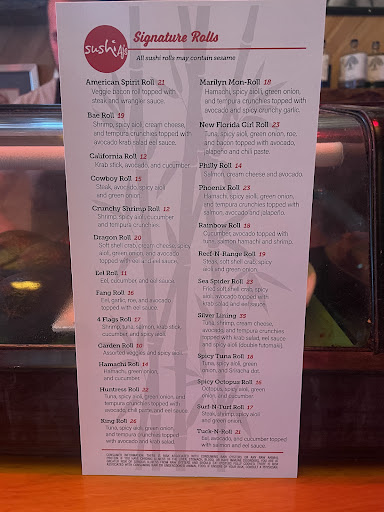 sushi
Signature Rolls
All sushi rolls may contain sesame
American Spirit Roll 21
Veggie bacon roll topped with
steak and wrangler sauce.
Bae Roll 19
Shrimp, spicy aioli, cream cheese,
and tempura crunchies topped with
avocado krab salad eel sauce.
California Roll 12
Krab stick, avocado, and cucumber.
Cowboy Roll 15
Steak, avocado, spicy aioli
and green onion.
Crunchy Shrimp Roll 12
Shrimp, spicy aioli, cucumber
and tempura crunchies.
Dragon Roll 20
Soft shell crab, cream cheese, spicy
aioli, green onion, and avocado
topped with eel and eel sauce.
Eel Roll 11
Eel, cucumber, and eel sauce.
Fang Roll 16
Eel, garlic, roe, and avocado,
topped with eel sauce.
4 Flags Roll 17
Shrimp, tuna, salmon, krab stick,
cucumber, and spicy aioli.
Garden Roll 10
Assorted veggies and spicy aioli.
Hamachi Roll 14
Hamachi, green onion,
and cucumber.
Huntress Roll 22
Tuna, spicy aioli, green onion, and
tempura crunchies topped with
avocado, chili paste, and eel sauce.
King Roll 26
Tuna, spicy aioli, green onion,
and tempura crunchies topped
with avocado and krab salad.
Marilyn Mon-Roll 18
Hamachi, spicy aioli, green onion,
and tempura crunchies topped with
avocado and spicy crunchy garlic.
New Florida Girl Roll 23
Tuna, spicy aioli, green onion, roe,
and bacon topped with avocado,
jalapeño and chili paste.
Philly Roll 14
Salmon, cream cheese and avocado.
Phoenix Roll 23
Hamachi, spicy aioli, green onion,
and tempura crunchies topped with
salmon, avocado and jalapeño.
Rainbow Roll 18
Cucumber, avocado topped with
tuna, salmon hamachi and shrimp.
Reef-N-Range Roll 19
Steak, soft shell crab, spicy
aioli and green onion.
Sea Spider Roll 23
Fried soft shell crab, spicy
aioli, avocado topped with
krab salad and eel sauce.
Silver Lining 35
Tuna, shrimp, cream cheese,
avocado and tempura crunchies
topped with krab salad, eel sauce
and spicy aioli (double futomaki).
Spicy Tuna Roll 18
Tuna, spicy aioli, green
onion, and Sriracha dot.
Spicy Octopus Roll 16
Octopus, spicy aioli, green
onion, and cucumber.
Surf-N-Turf Roll 17
Steak, shrimp, spicy aioli
and green onion.
Tuck-N-Roll 21
Eel, avocado, and cucumber topped
with salmon and eel sauce.